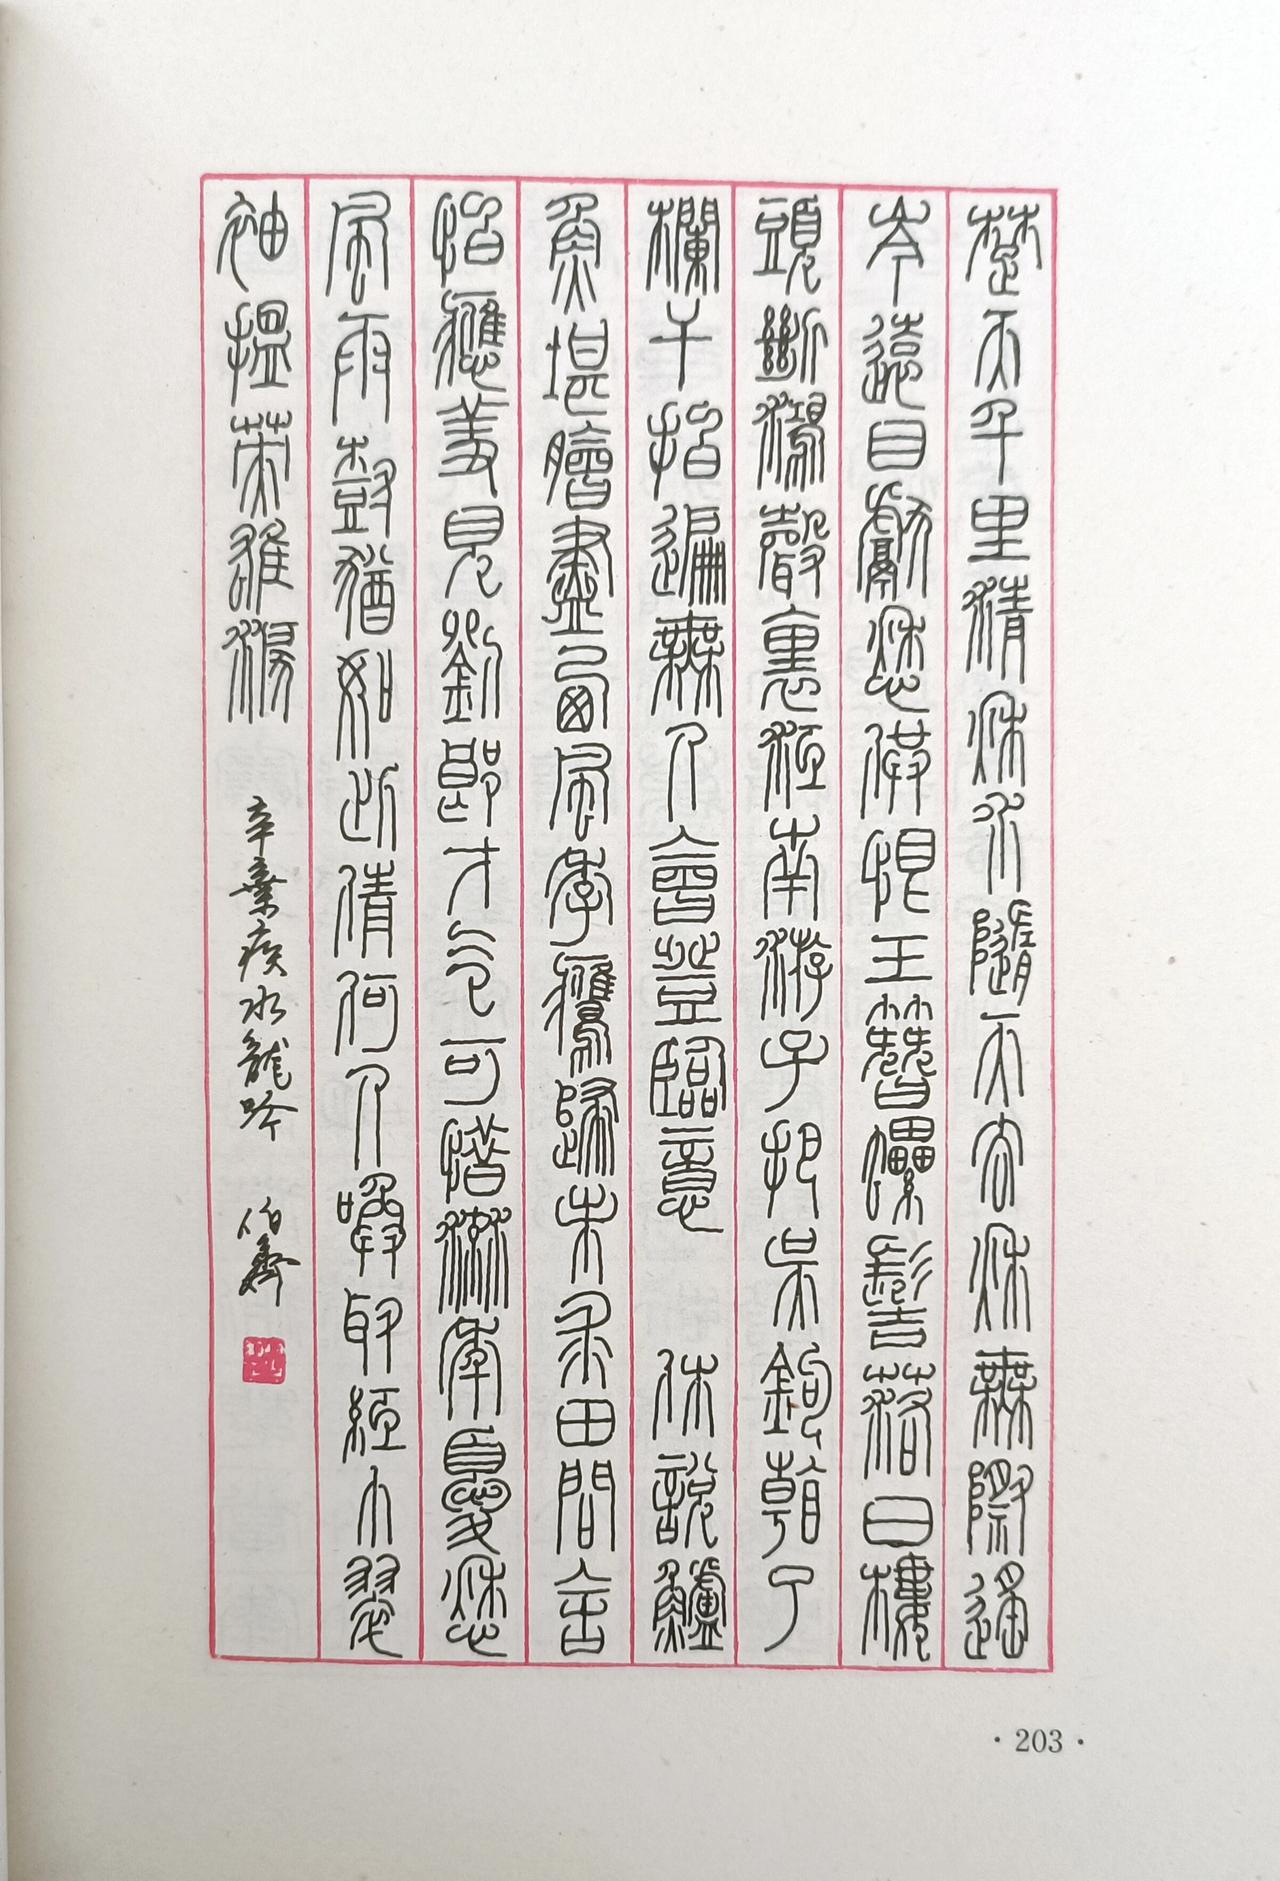 楚天千里清秋水隨天去秋無際遙
岑遠目獻愁供恨玉簪螺髻落日樓
頭斷鴻聲裏江南游子把吳鉤看了
欄干拍遍無人會登臨意　休說鱸
魚堪膾盡西風季鷹歸未求田問舍
怕應羞見劉郎才气可惜流年憂愁
風雨樹猶如此倩何人喚取紅巾翠
袖搵英雄淚　辛棄疾水龍吟　伯齊
·203·